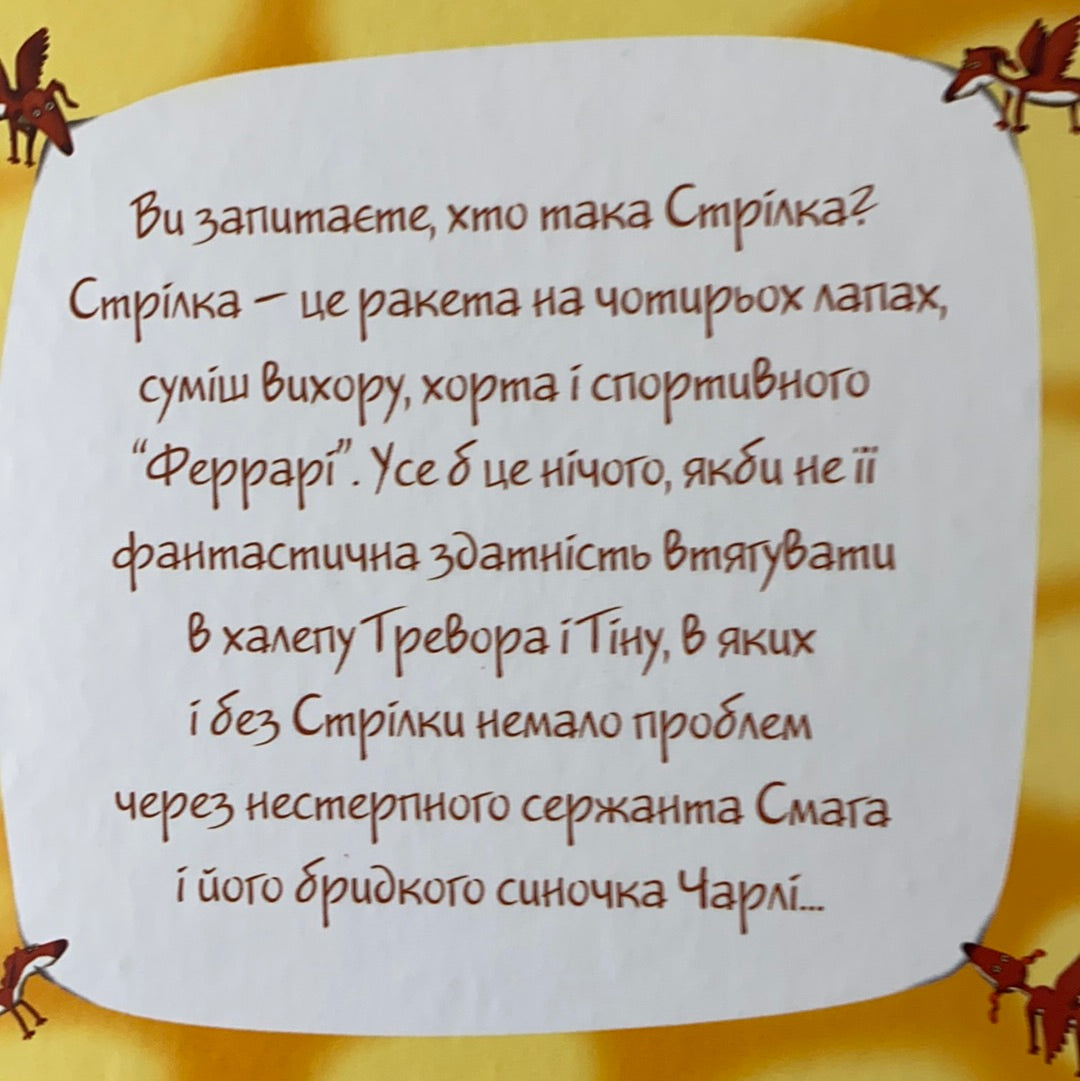 Ви запитаєте, хто така Стрілка?
Стрілка – це ракета на чотирьох лапах,
суміш вихору, хорта і спортивного
“Феррарі”. Усе б це нічого, якби не її
фантастична здатність втягувати
в халепу Тревора і Тіну, в яких
і без Стрілки немало проблем
через нестерпного сержанта Смага
і його бридкого синочка Чарлі...